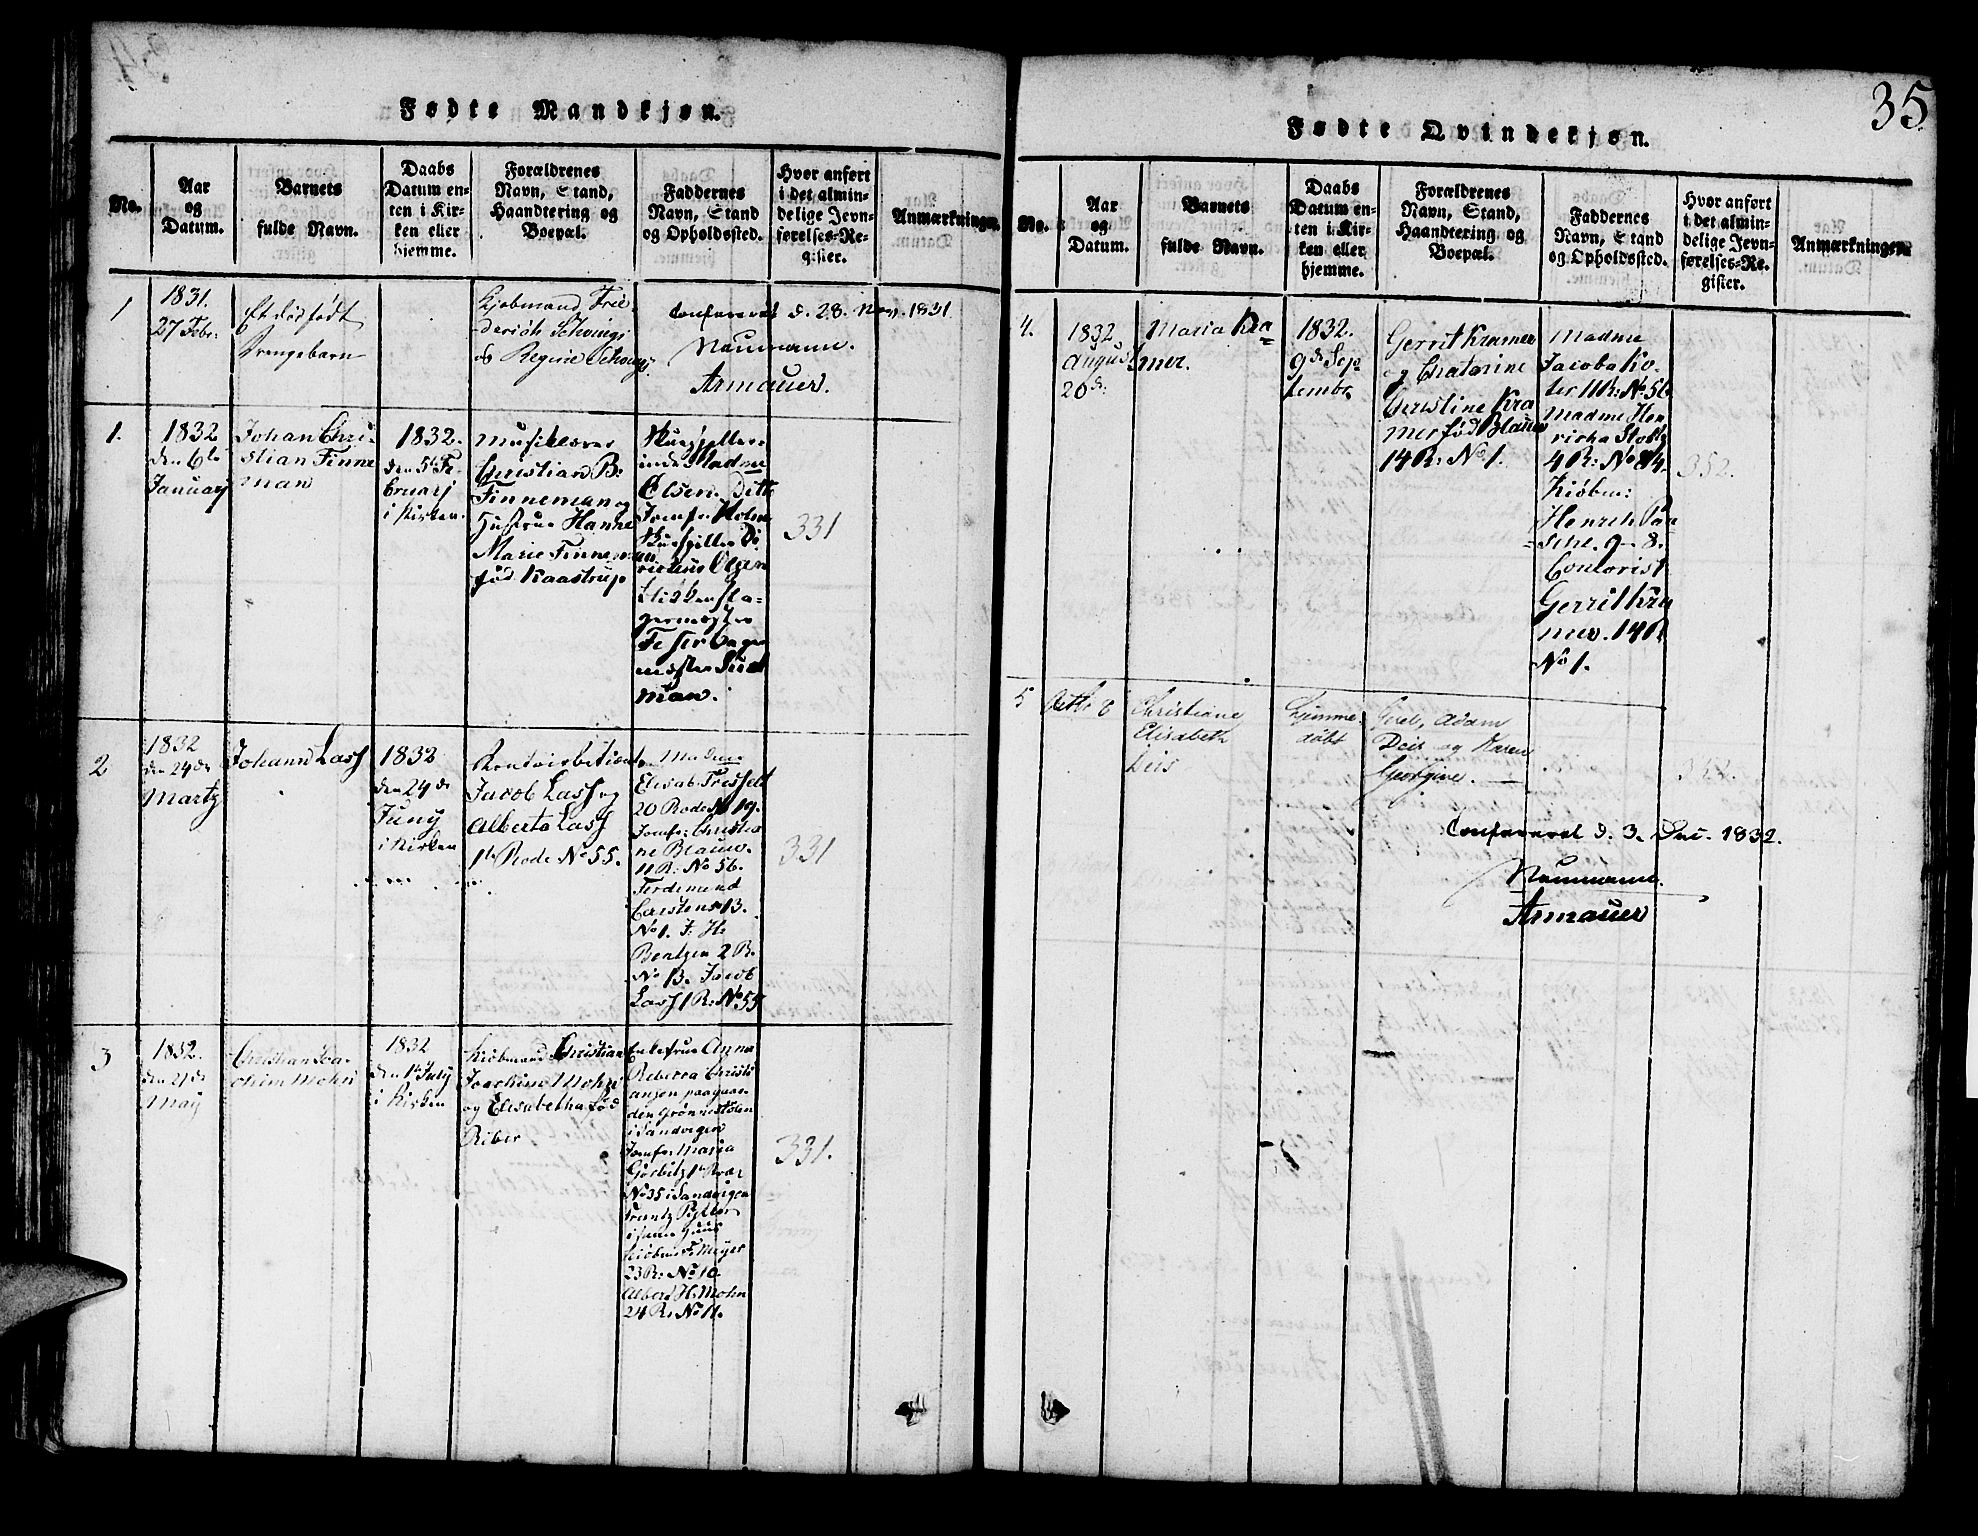 Fødte Mandkjøn.
No.
Aar
og
Datum.
Barnets
fulde Navn.
Daabs
Datum en-
ten i Kir-
ken eller
hjemme.
Forældrenes
Navn, Stand,
Haandtering og
Boepæl.
Faddernes
Navn, Stand
og Opholdssted.
Hvor anført
i det almin-
delige Jevn-
førelses-Re-
gister.
Anmærkninger.
1
1831.
27 Febr.
Et dødfødt
Drengebarn
Kjøbmand Frie
derich Schwings
og Regine Schwings
Confereret d. 28. Nov. 1831
Neumann.
Armauer.
1.
1832
den 6te
Januarj
Johan Chri-
stian Finne
man
1832.
den 5te Fe
bruarj
i Kirken.
Musiklærer
Christian B:
Finneman og
Hustrue Hanne
Marie Finneman
fød Kaastrup
Skuespiller-
inde Madme
Olsen. Ditto
Jomfr Holm
Skuespiller
Olsen
Fesser
man.
331
2
1832
den 24de
Martz
Johann Lass
1832
den 24de
Juny
i Kirken
Jacob Lass og
Alberta Lass
1te Rode No 55.
Madme
Elisab.
20 Rode No 19.
Jomfr: Christia
ne Blauw.
11 R: No 56.
Ferdemend
Carstens 13.
No 1. J: H:
Bentzen 2 R.
No 13. Jacob
Lass 1 R: No 55
331
3
1832.
den 21de
May
Christian Joa-
chim Mohn
1832
den 1te July
i Kirken
Kiøbmand Christian
Joachim Mohn
og Elisabetha fød
Riber
Enkefrue Anna
Rebecca Christi
ansen paa gaar
den Grønnestølen
i Sandvigen
Jomfr: Maria
Görbitz 1te Rode
No 35 i Sandvigen
Frantz
i sam Huus
Kiøbmand Meyer
23 R: No 10
Albert H. Mohn
24 R. No 11.
331.
35
Fødte Qvindekjøn.
No.
Aar
og
Datum.
Barnets
fulde Navn.
Daabs
Datum en-
ten i Kir-
ken eller
hjemme.
Forældrenes
Navn, Stand,
Haandtering og
Boepæl.
Faddernes
Navn, Stand
og Opholdssted.
Hvor anført
i det almin-
delige Jevn-
førelses-Re-
gister.
Anmærkninger.
4.
1832
August
20de
Maria Kra
=mer.
1832.
9de Sep
tembr.
Gerrit Kramer
og Chatarine
Cerestine Kra
mer fød Blauw
14 R: No 1.
Madme
Jacoba Ko-
ter 11 R: No 56
Madme Hen
richa Stoltz
4 R: No 84.
Kiøbm:
Henrich Pa
=sche. 9-8.
Contorist
Gerrit Kra
mer. 14 R
No 1.
352.
5
Octbr 8
Christiane
Elisabeth
Deis
Hjemme-
døbt
Adam
Deis og Karen
Georgine.
Confereret d. 3. Dec. 1832.
Neumann.
Armauer